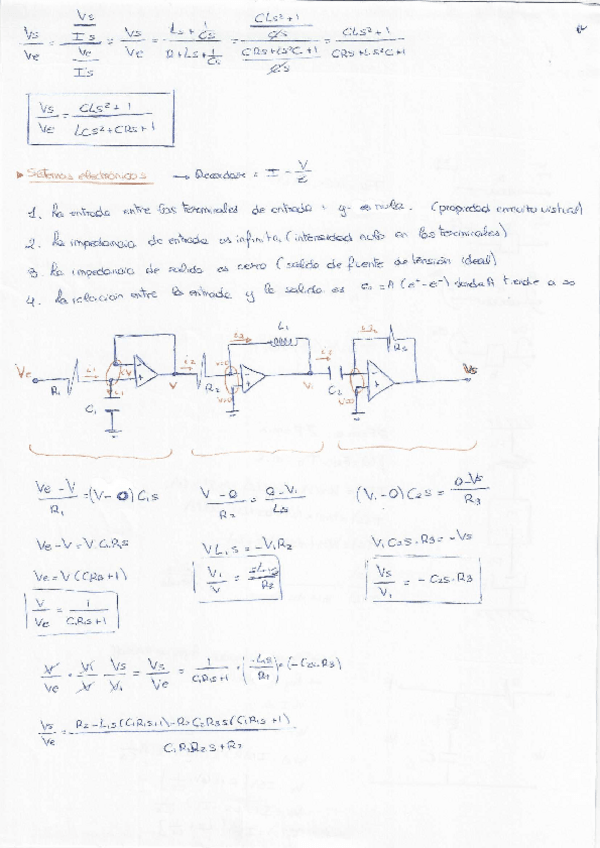 Vs/Ve = (Vs/Is)/(Ve/Is) = Vs/Ve = (Ls + 1/Cs)/(R+Ls+1/Cs) = ((CLs²+1)/Cs)/((CRs+Ls²C+1)/Cs) = (CLs²+1)/(CRs+Ls²C+1)
Vs/Ve = (CLs²+1)/(LCs²+CRs+1)
▸ Sistemas electrónicos → Recordar: I = V/Z
1. La entrada entre las terminales de entrada y- es nula. (propiedad circuito virtual)
2. La impedancia de entrada es infinita (intensidad nula en los terminales)
3. La impedancia de salida es cero (salida de fuente de tensión ideal)
4. La relación entre la entrada y la salida es = A (e⁺-e⁻) donde A tiende a ∞
Ve R1 i1 C1 V i2 R2 i3 L1 V1 C2 R3 Vs
(Ve-V)/R1 = (V-0)C1s (V-0)/R2 = (0-V1)/Ls (V1-0)C2s = (0-Vs)/R3
Ve-V = V C1R1s VL1s = -V1R2 V1C2s·R3 = -Vs
Ve = V(CRs+1) V1/V = R2 Vs/V1 = -C2s·R3
V/Ve = 1/(C1R1s+1)
V/Ve · V1/V · Vs/V1 = Vs/Ve = 1/(C1R1s+1) · (-L1s/R2) · (-C2s·R3)
Vs/Ve = (R2-L1s(C1R1s+1)-R2C2R3s(C1R1s+1))/(C1R1R2s+R2)